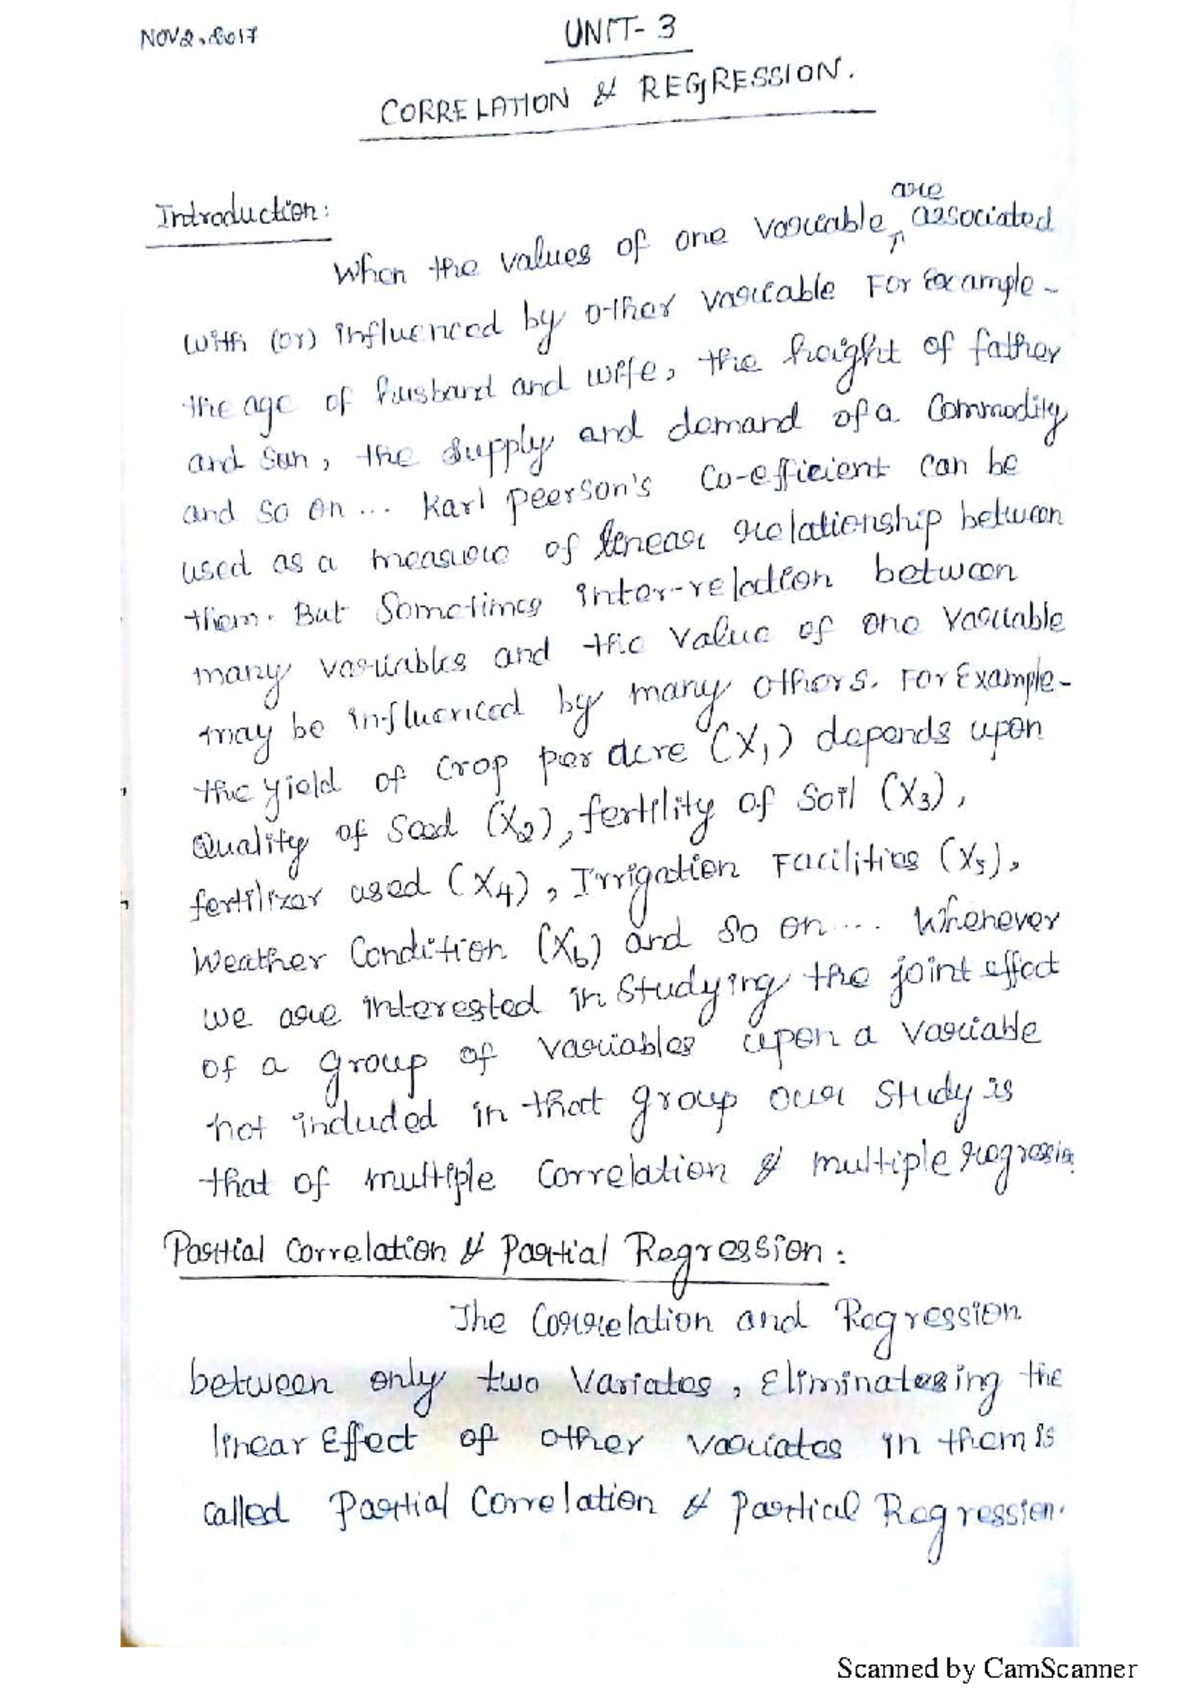 NOV 2, 2017
UNIT- 3
CORRELATION & REGRESSION.
Introduction:
are
When the values of one variable, associated
with (or) influenced by other variable For Example-
the age of husband and wife, the height of father
and sun, the supply and demand of a Commodity
and so on ... Karl peerson's Co-efficient can be
used as a measure of linear relationship between
them. But Sometimes inter-relation between
many variables and the value of one variable
may be influenced by many others. For Example-
the yield of Crop per acre (X1) depends upon
Quality of Seed (X2), fertility of Soil (X3),
fertilizer used (X4), Irrigation Facilities (X5),
Weather Condition (X6) and so on .... Whenever
we are interested in studying the joint effect
of a group of variables upon a variable
not included in that group our study is
that of multiple Correlation & multiple regression
Partial Correlation & Partial Regression:
The Correlation and Regression
between only two Variates, Eliminateing the
linear Effect of other variates in them is
called Partial Correlation & Partial Regression.
Scanned by CamScanner